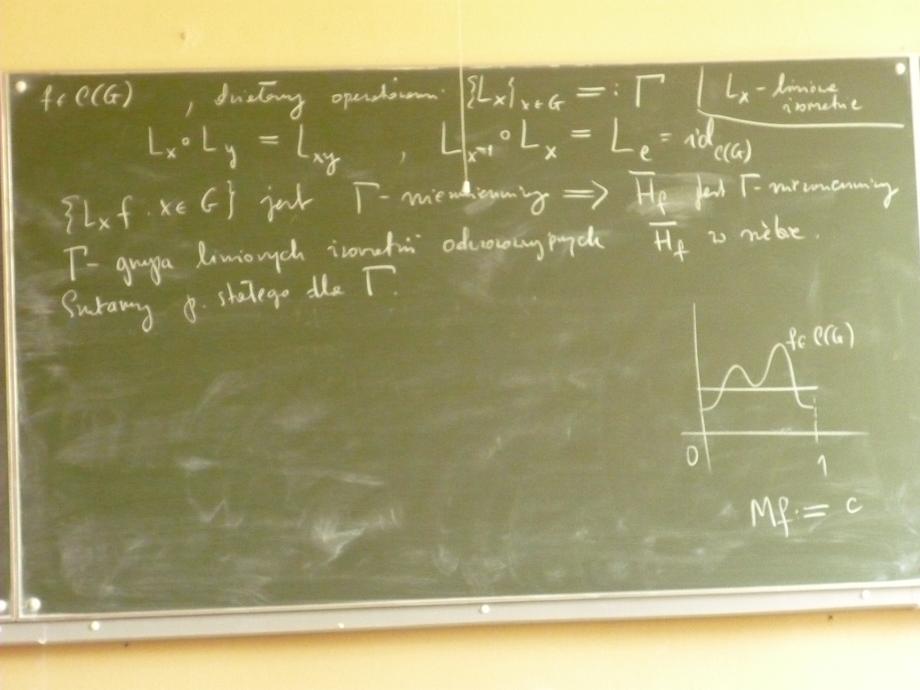 f ∈ C(G) , działamy operatorami {L_x}_{x∈G} =: Γ | L_x - liniowe izometrie
L_x ∘ L_y = L_{xy} , L_{x^{-1}} ∘ L_x = L_e = id_{C(G)}
{L_x f : x ∈ G} jest Γ-niezmienniczy ⟹ H̄_f jest Γ-niezmienniczy
Γ - grupa liniowych izometrii odwzorowujących H̄_f w siebie.
Szukamy p. stałego dla Γ.
f ∈ C(G)
0 1
Mf := c